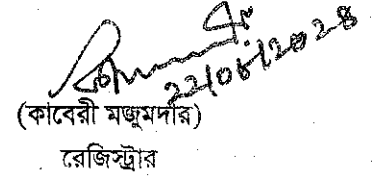 22/08/2028
(কাবেরী মজুমদার)
রেজিস্ট্রার